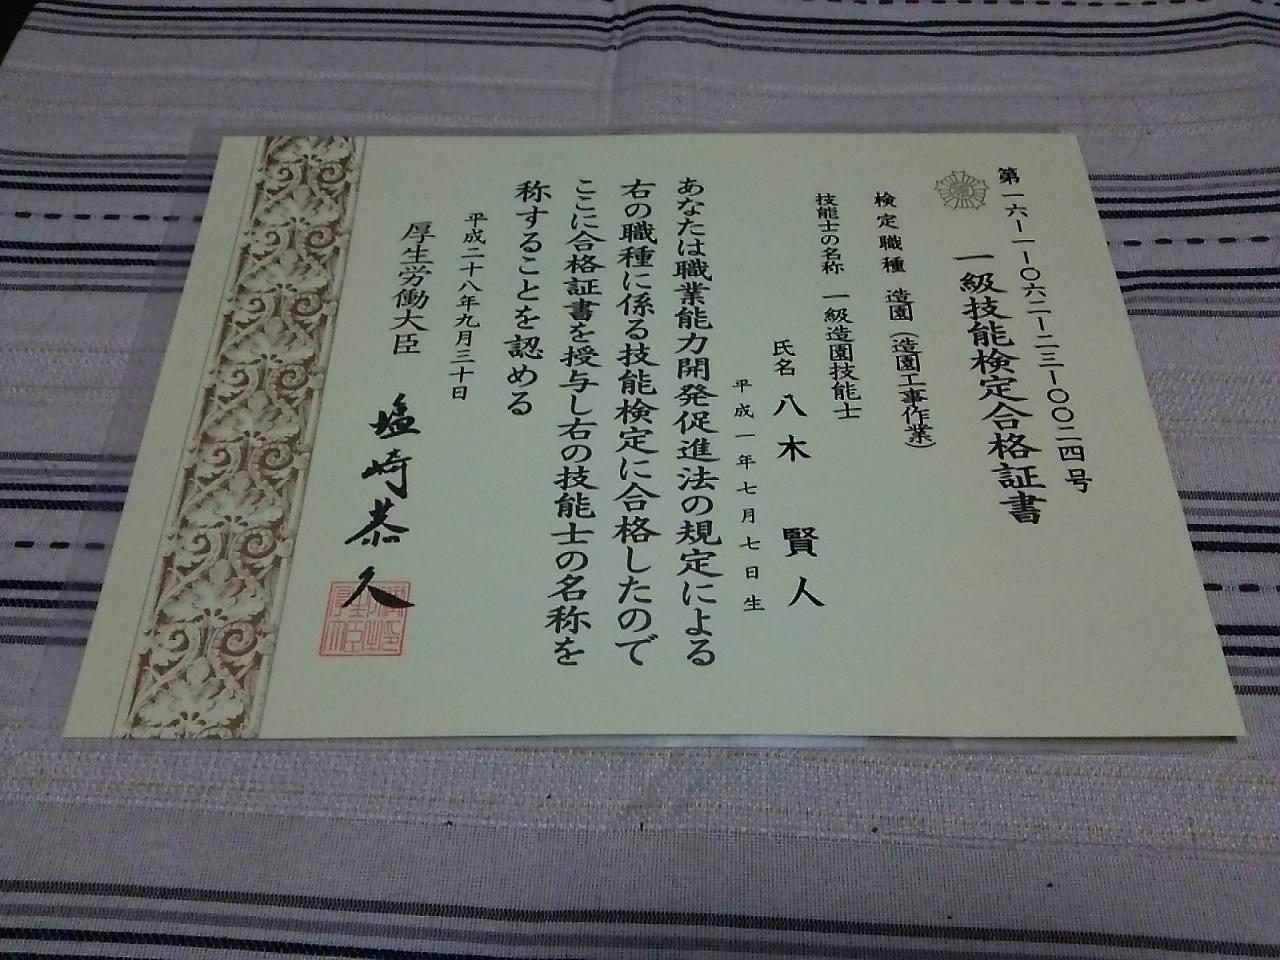 第一六ー一ー〇六二ー二三ー〇〇二四号
一級技能検定合格証書
検定職種 造園(造園工事作業)
技能士の名称 一級造園技能士
氏名 八木 賢人
平成一年七月七日生
あなたは職業能力開発促進法の規定による
右の職種に係る技能検定に合格したので
ここに合格証書を授与し右の技能士の名称を
称することを認める
平成二十八年九月三十日
厚生労働大臣 塩崎恭久